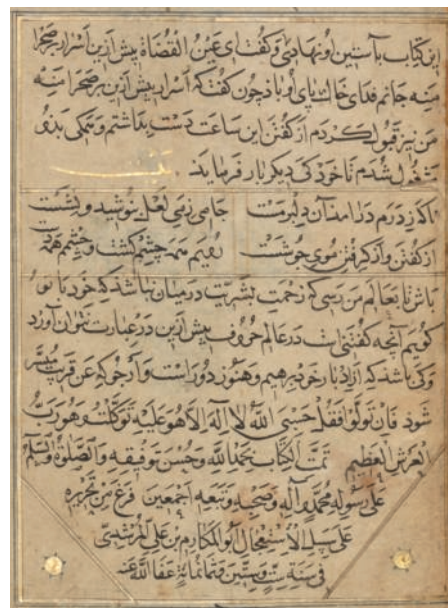 این کتاب بآستین او نهادمی و کفت ای عین القضاة پیش ازین اسرار بر صحرا
منه جانم فدای خاک پای او باد چون کفت که اسرار بیش ازین بر صحرا منه
من نیز قبول کردم از کفتن این ساعت دست بداشتم و بتمکی بدو
مشغول شدم تا خود کی دیکر بار فرماید
ناکه ز درم درامد آن دلبر مست جامی ز می لعل بنوشید و بنشست
از کفتن و از کرفتن موی خوشست رویم همه چشم کشت و چشمم همه دست
باش تا بعالم من رسی که زحمت بشریت در میان نباشد که خود با تو
کویم آنچه کفتنی است در عالم حروف بیش ازین در عبارت نتوان آورد
وکی باشد که از باز خود برهیم و هنوز دور است و ارجو که عن قرب میسر
شود فان تولوا فقل حسبی الله لا اله الا هو علیه توکلت و هو رب
العرش العظیم تمت الکتاب بحمد الله وحسن توفیقه والصلوة والسلم
علی رسوله محمد وآله وصحبه وتبعه اجمعین فرغ من تحریره
علی سبیل الاستعجال ابو المکارم بن علی المرشدی
فی سنة ست وستین وثمانمائة عفا الله عنه